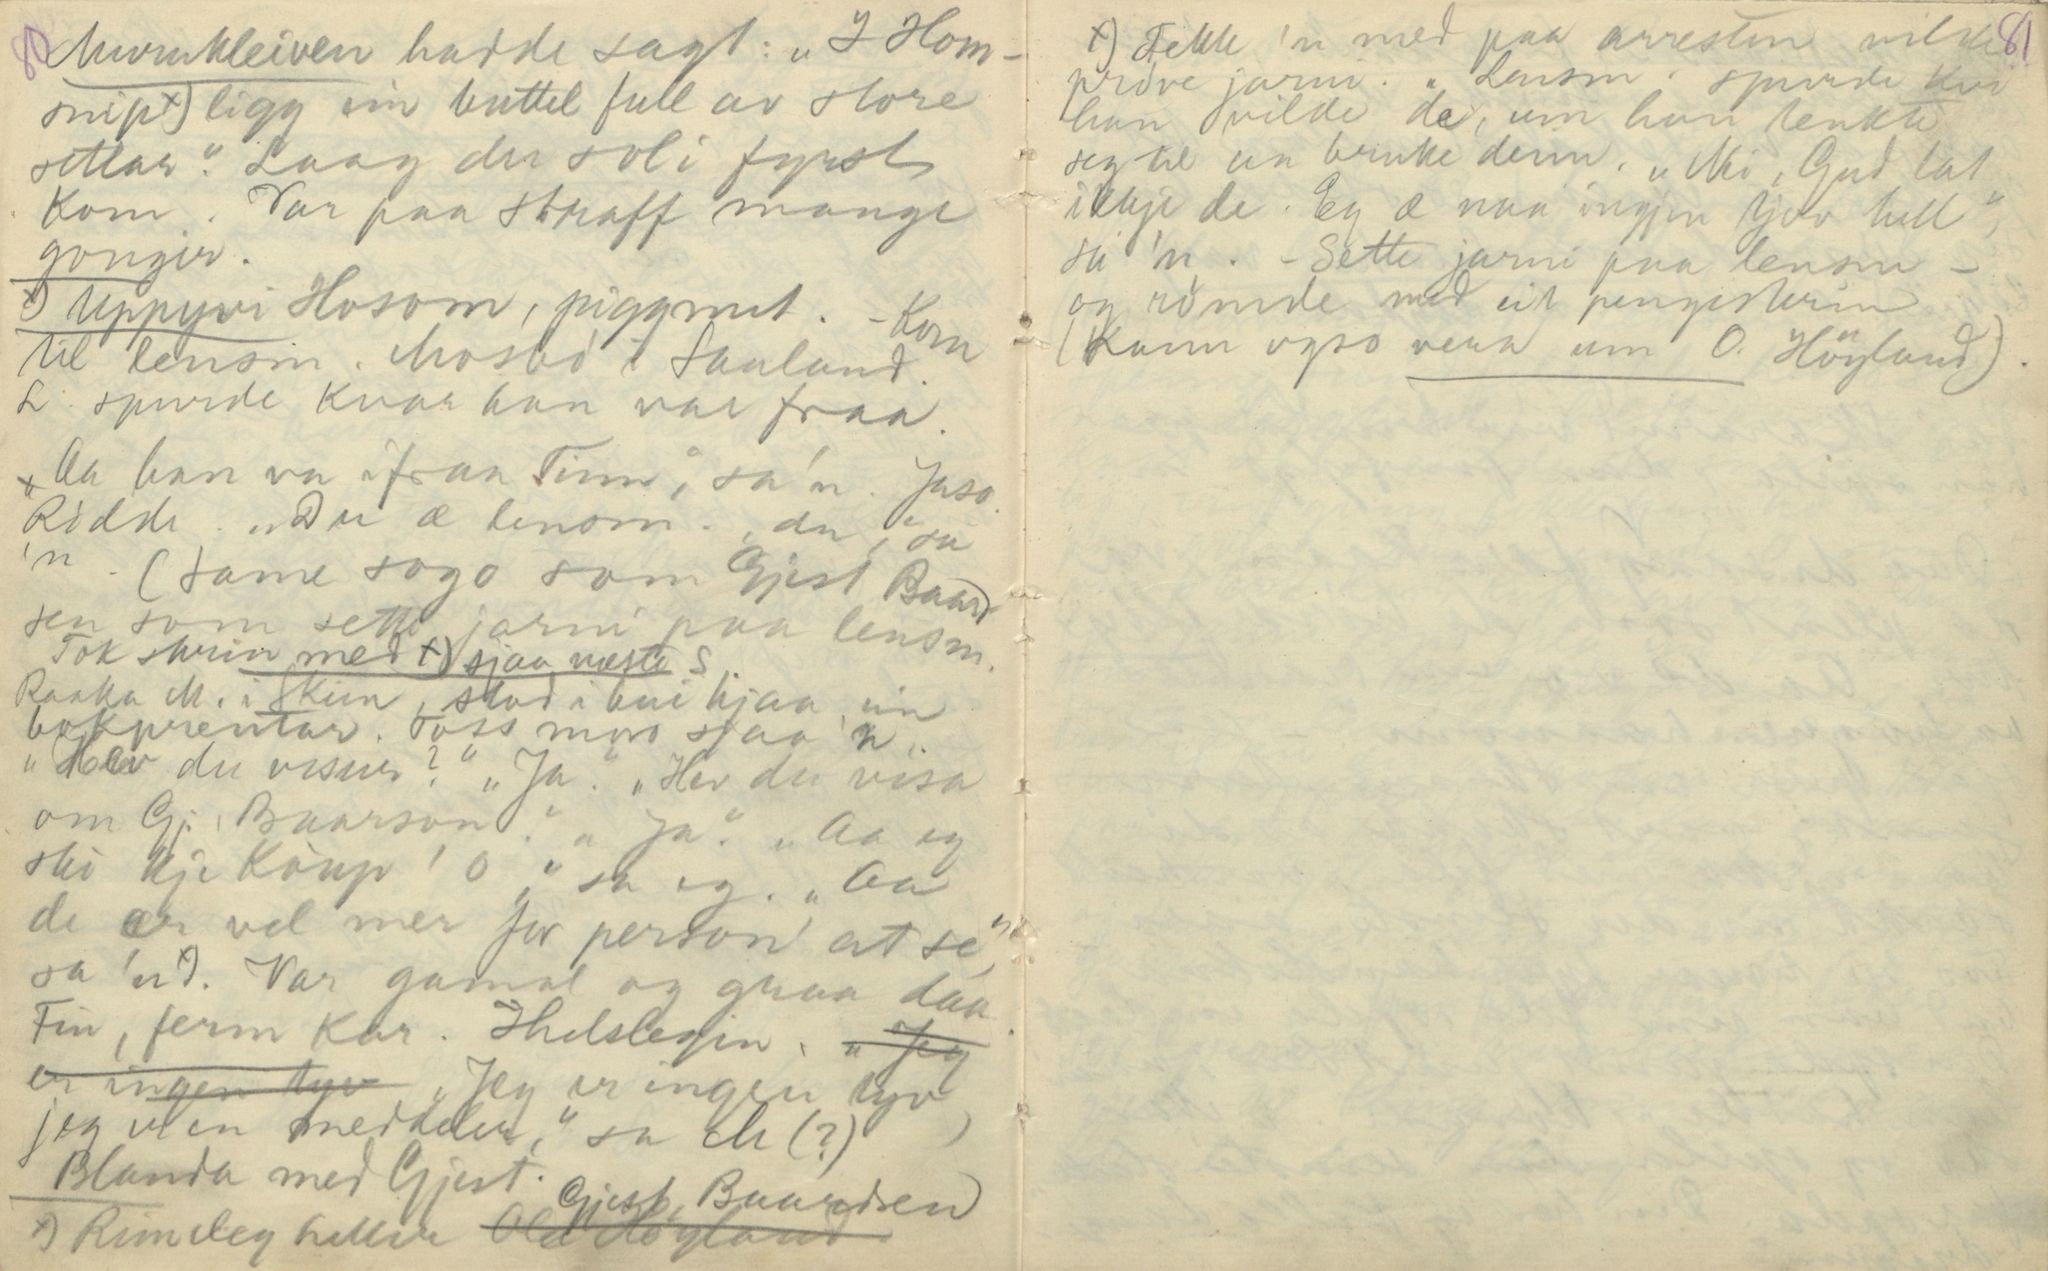 80
Murukleiven hadde sagt: „I Hom-
snip x) ligg ein buttel full av store
setlar“. Laag der sol i fyrst
kom. Var paa straff mange
gongir.
x) Uppyvi Hosom, piggmut. - Kom
til lensm. Mosbö i Sauland.
L. spurde kvar han var fraa.
„Aa han va ifraa Tinn“, sa 'n. Jaso.
Rödde. „Du æ lensm., du“, sa
'n. (Same sogo som Gjest Baard-
sen som sette jarni paa lensm.
Tok skrin med x) sjaa næste S
Raaka M. i Skien, stod i bui hjaa ein
bokprentar. Töss moro sjaa 'n.
„Hev du visur?“ „Ja.“ „Hev du visa
om Gj. Baarson?“ „Ja“. „Aa eg
ski kje köup 'o“, sa eg. „Aa
de er vel mer for person at se“,
sa 'n x). Var gamal og graa daa.
Fin, ferm kar. Ihelslegjin. „Jeg
er ingen tyv „Jeg er ingen tyv
jeg men meddeler,“ sa M (?)
Blanda med Gjest.
Gjest Baardsen)
x) Rimeleg heller Ola Höyland
81
x) Fekk 'n med paa arresten vilde
pröve jarni. „Lensm. spurde kvi
han vilde de, um han tenkte
seg til aa bruke deim. „Nei, Gud lat
ikkje de. Eg æ naa ingjen tjuv hell“,
sa 'n. - Sette jarni paa lensm -
og römde med eit pengeskrin
(Kann ogso vera um O. Höyland).